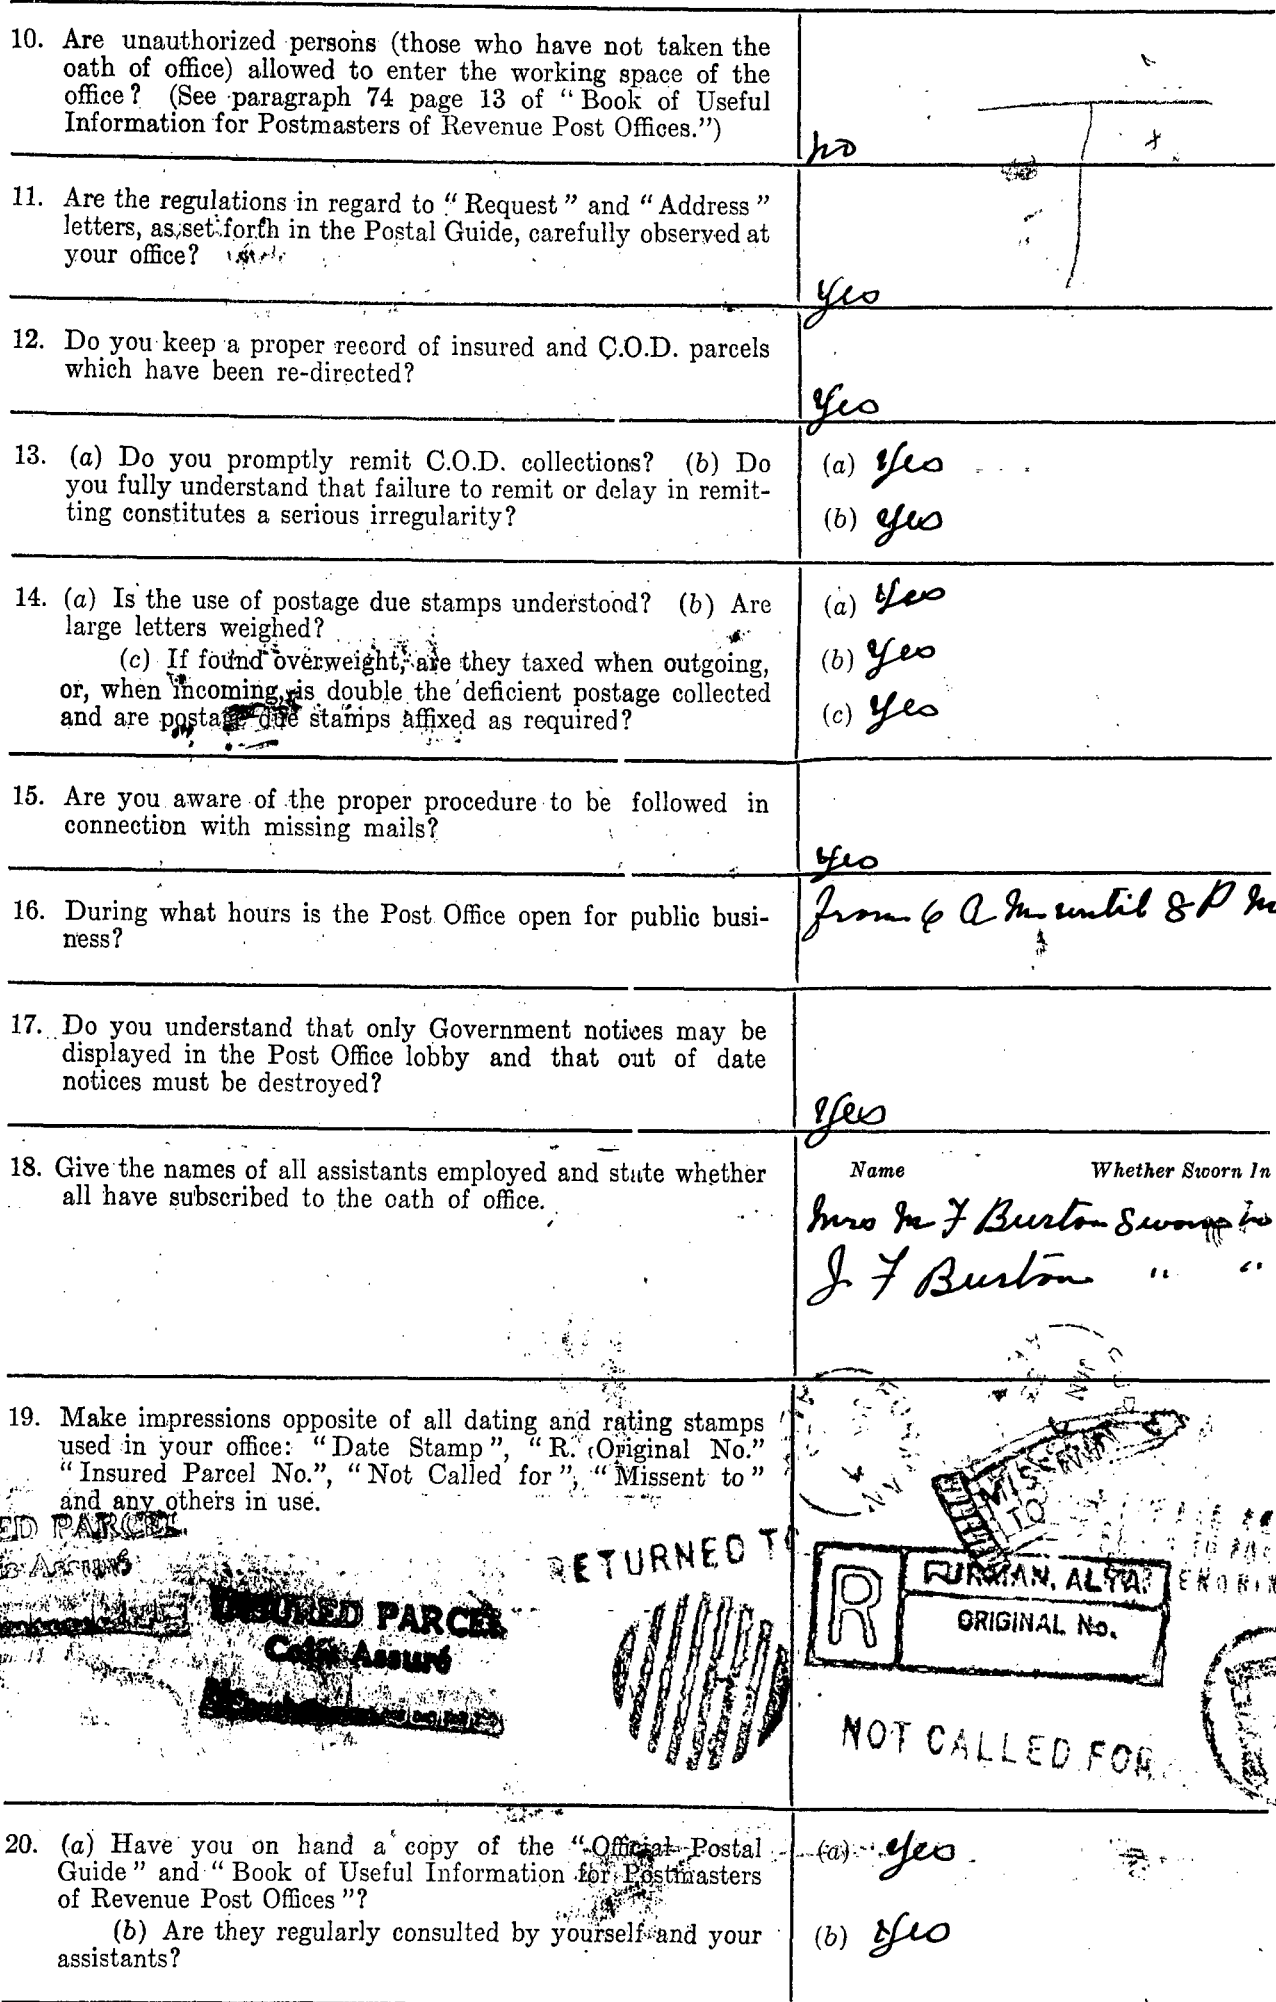 10. Are unauthorized persons (those who have not taken the
oath of office) allowed to enter the working space of the
office? (See paragraph 74 page 13 of "Book of Useful
Information for Postmasters of Revenue Post Offices.")
no
11. Are the regulations in regard to "Request" and "Address"
letters, as set forth in the Postal Guide, carefully observed at
your office?
Yes
12. Do you keep a proper record of insured and C.O.D. parcels
which have been re-directed?
Yes
13. (a) Do you promptly remit C.O.D. collections? (b) Do
you fully understand that failure to remit or delay in remit-
ting constitutes a serious irregularity?
(a) Yes
(b) Yes
14. (a) Is the use of postage due stamps understood? (b) Are
large letters weighed?
(c) If found overweight, are they taxed when outgoing,
or, when incoming, is double the deficient postage collected
and are postage due stamps affixed as required?
(a) Yes
(b) Yes
(c) Yes
15. Are you aware of the proper procedure to be followed in
connection with missing mails?
Yes
16. During what hours is the Post Office open for public busi-
ness?
from 6 A M until 8 P M
17. Do you understand that only Government notices may be
displayed in the Post Office lobby and that out of date
notices must be destroyed?
Yes
18. Give the names of all assistants employed and state whether
all have subscribed to the oath of office.
Name Whether Sworn In
Mrs M F Burton Sworn in
J. F Burton " "
19. Make impressions opposite of all dating and rating stamps
used in your office: "Date Stamp", "R. Original No."
"Insured Parcel No.", "Not Called for", "Missent to"
and any others in use.
ED PARCEL
Assuré
INSURED PARCEL
Colis Assuré
RETURNED TO
JAN
MISSENT
TO
R
FURMAN, ALTA.
ORIGINAL No.
NOT CALLED FOR
20. (a) Have you on hand a copy of the "Official Postal
Guide" and "Book of Useful Information for Postmasters
of Revenue Post Offices"?
(b) Are they regularly consulted by yourself and your
assistants?
(a) Yes
(b) Yes